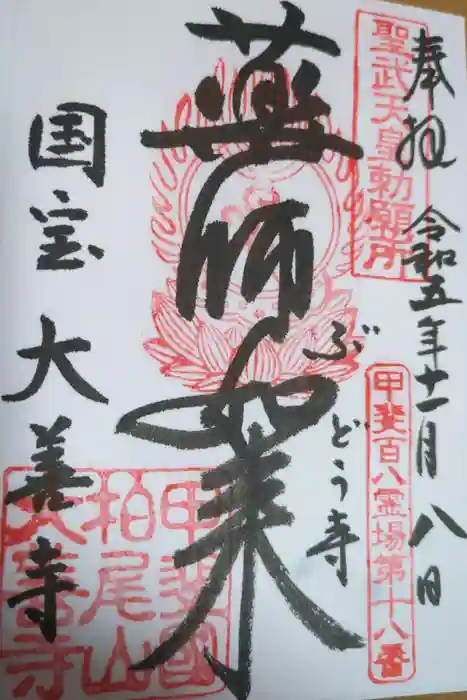 奉拝 令和五年十一月八日
聖武天皇勅願所
甲斐百八霊場第十八番
薬師如来
ぶどう寺
国宝 大善寺
甲斐國
柏尾山
大善寺